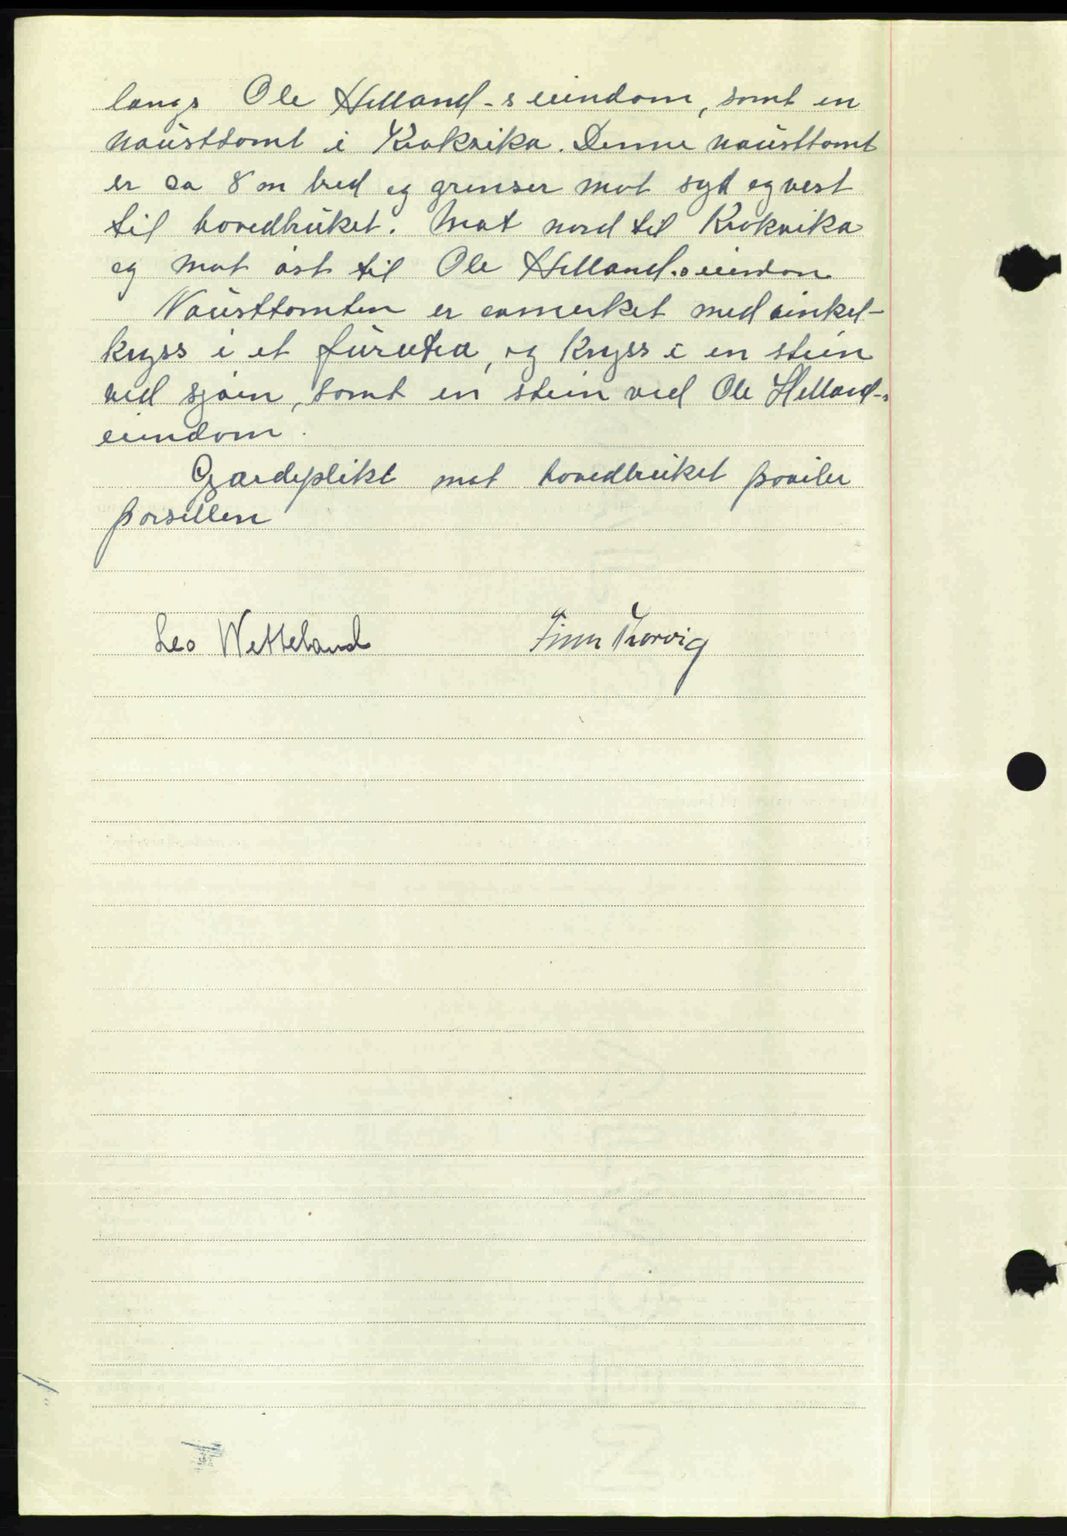 langs Ole Helland-s eiendom, samt en
nausttomt i Krokvika. Denne nausttomt
er ca 8 m bred og grenser mot syd og vest
til hovedbruket. Mot nord til Krokvika
og mot øst til Ole Helland.s eiendom
Nausttomten er avmerket med vinkel-
kryss i et furutre, og kryss i en stein
ved sjøen, samt en stein ved Ole Helland-s
eiendom.
Gjærdeplikt mot hovedbruket påviler
parsellen
Leo Wetteland Finn Thorvig